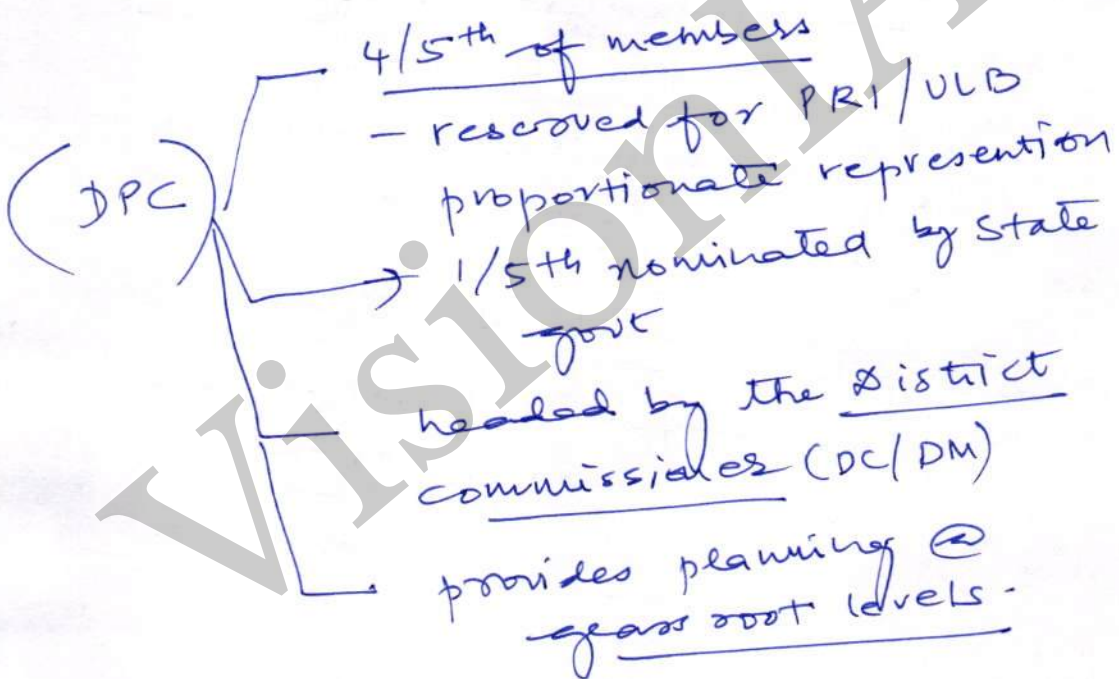 4/5th of members
- reserved for PRI/ULB
(DPC)
proportionate represention
1/5th nominated by State
govt
headed by the District
commissioner (DC/DM)
provides planning @
grass root levels.
VisionIA